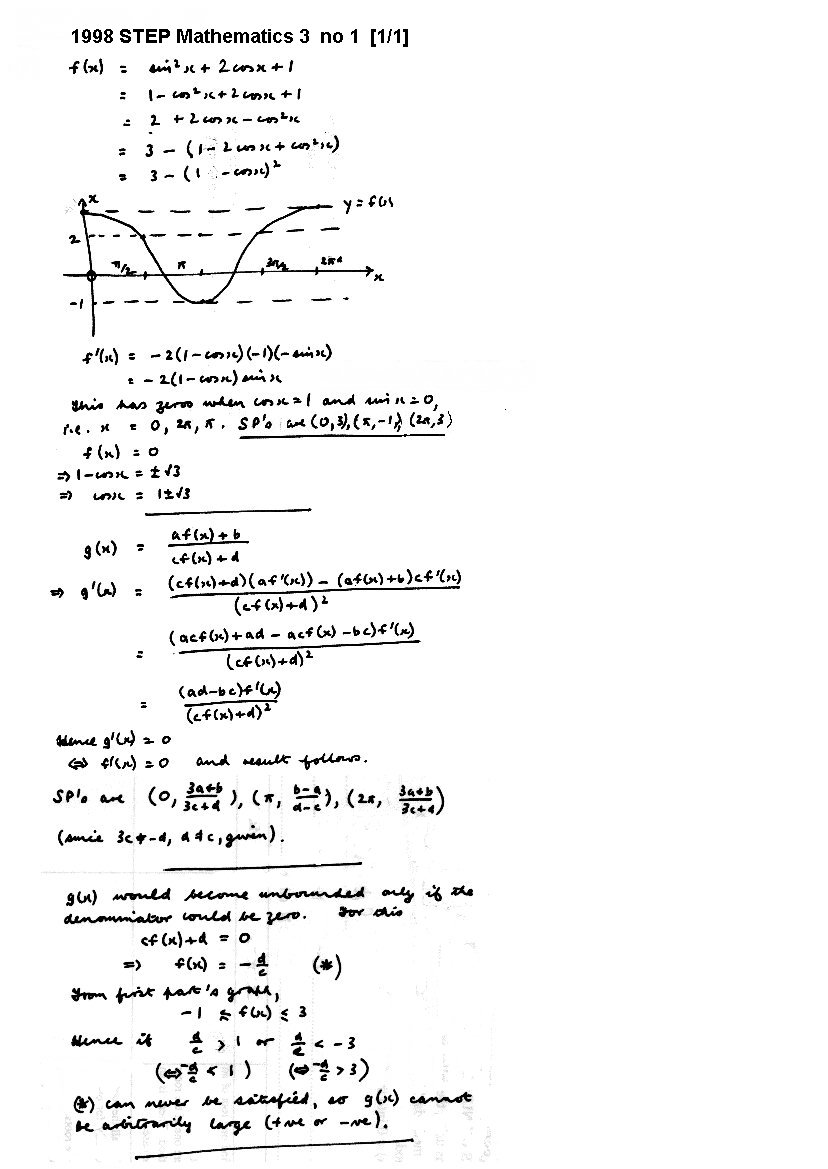 1998 STEP Mathematics 3 no 1 [1/1]
f(x) = sin²x + 2cosx + 1
= 1 - cos²x + 2cosx + 1
= 2 + 2cosx - cos²x
= 3 - (1 - 2cosx + cos²x)
= 3 - (1 - cosx)²
x
y = f(x
2
π/2 π 3π/2 2π
x
-1
f'(x) = -2(1-cosx)(-1)(-sinx)
= -2(1-cosx)sinx
This has zeros when cosx=1 and sinx=0,
i.e. x = 0, 2π, π. SP's are (0,3), (π,-1), (2π,3)
f(x) = 0
⇒ 1-cosx = ±√3
⇒ cosx = 1±√3
g(x) = af(x)+b / cf(x)+d
⇒ g'(x) = (cf(x)+d)(af'(x)) - (af(x)+b)cf'(x) / (cf(x)+d)²
= (acf(x)+ad - acf(x) - bc)f'(x) / (cf(x)+d)²
= (ad-bc)f'(x) / (cf(x)+d)²
Hence g'(x) = 0
⇔ f'(x) = 0 and result follows.
SP's are (0, 3a+b/3c+d), (π, b-a/d-c), (2π, 3a+b/3c+d)
(since 3c≠-d, d≠c, given).
g(x) would become unbounded only if the
denominator could be zero. For this
cf(x)+d = 0
⇒ f(x) = -d/c (*)
From first part's graph,
-1 ≤ f(x) ≤ 3
Hence if d/c > 1 or d/c < -3
(⇔ -d/c < 1) (⇔ -d/c > 3)
(*) can never be satisfied, so g(x) cannot
be arbitrarily large (+ve or -ve).